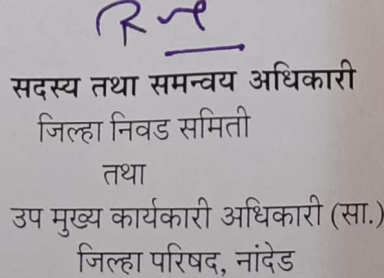 सदस्य तथा समन्वय अधिकारी
जिल्हा निवड समिती
तथा
उप मुख्य कार्यकारी अधिकारी (सा.)
जिल्हा परिषद, नांदेड